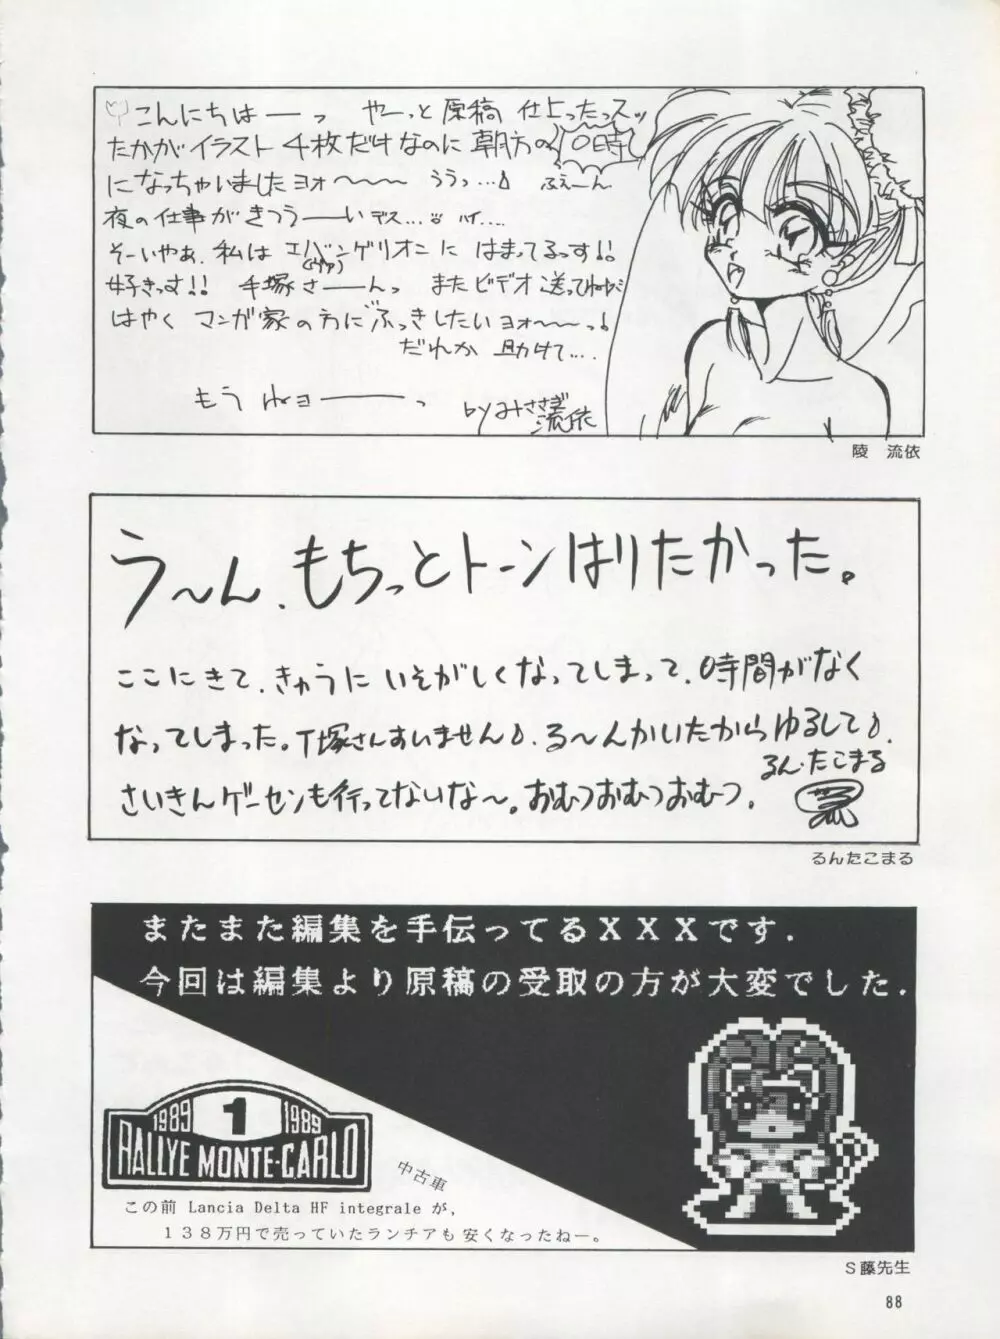 こんにちはーーっ やーっと原稿仕上ったっスッ
たかがイラスト4枚だけなのに朝方の10時
になっちゃいましたヨォ〜〜〜 ううっ…♪ ふぇーん
夜の仕事がきつうーーいデス… ハイ….
そーいやぁ、私はエバンゲリオンに はまってるっす!!
(ヴァ)
好きっす!! 手塚さーーんっ またビデオ送ってねゆ
はやくマンガ家の方にふっきしたいヨォ〜〜っ♪
だれか 助けて….
もうねョーーーーっ
byみささぎ
流依
陵 流依
う〜ん、もちっとトーンはりたかった。
ここにきて、きゅうにいそがしくなってしまって、時間がなく
なってしまった。T塚さんすいません♪、る〜んかいたからゆるして♪.
るん・たこまる
さいきんゲーセンも行ってないな〜。おむつおむつおむつ。
るんたこまる
またまた編集を手伝ってるＸＸＸです．
今回は編集より原稿の受取の方が大変でした．
1989 1 1989
RALLYE MONTE-CARLO
中古車
この前 Lancia Delta HF integrale が，
１３８万円で売っていたランチアも安くなったねー。
Ｓ藤先生
88